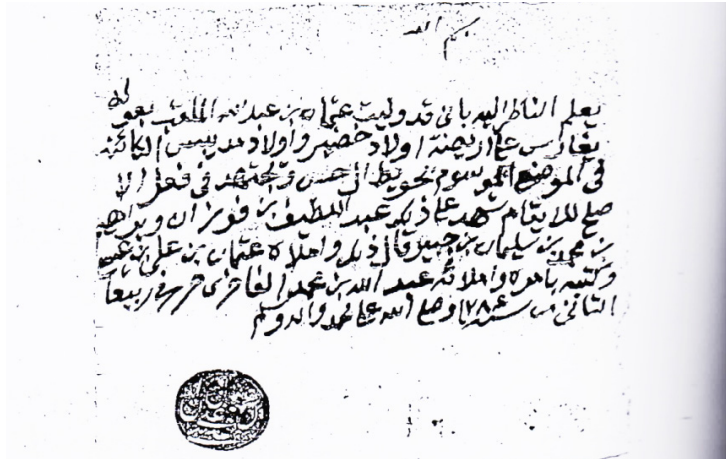 بسم الله
يعلم الناظر اليه باني قد وليت عثمان بن عبد الله الملقب بعوله
يغارس على اريضة اولاد خضير واولاد مديبس الكائنة
في الموضع الموسوم بحويط ال حسن ويجتهد في فعل الا
صلح للايتام شهد على ذلك عبد اللطيف بن فوزان وبراهيم
بن محمد بن سليمان بن جبير قال ذلك واملاه عثمان بن علي بن عيسى
وكتبه بامره واملائه عبد الله بن محمد الفاخري حرر في ربيع
الثاني من سنة وصلى الله على محمد واله وسلم